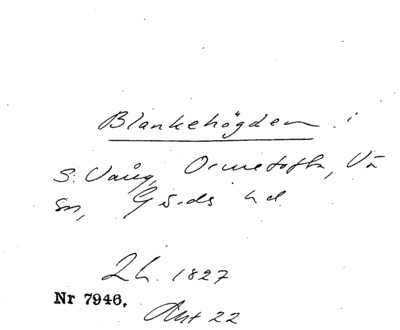 Blankehögden i
S. Vång, Ormetofta, Vä
sn, Gärds hd.
Lh. 1827
Nr 7946.
Akt 22